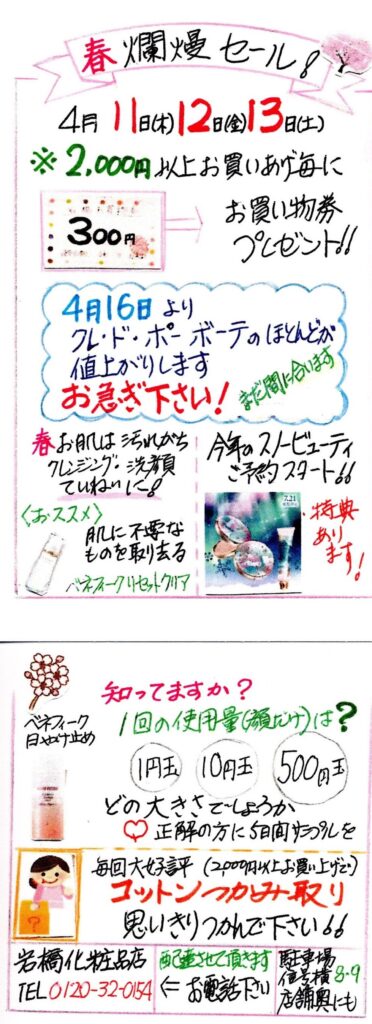 春爛熳セール!
4月11日(木)12日(金)13日(土)
※2,000円以上お買いあげ毎に
300円
お買い物券
プレゼント!!
4月16日より
クレ・ド・ポー ボーテのほとんどが
値上がりします
お急ぎ下さい!
まだ間に合います
春お肌は汚れがち
クレンジング・洗顔
ていねいに!
〈おススメ〉
肌に不要な
ものを取り去る
ベネフィークリセットクリア
今年のスノービューティ
ご予約スタート!!
7.21
特典
あり
ます!
知ってますか?
ベネフィーク
日やけ止め
1回の使用量(顔だけ)は?
1円玉
10円玉
500円玉
どの大きさでしょうか
正解の方に5日間サンプルを
?
毎回大好評 (2,000円以上お買い上げで)
コットンつかみ取り
思いきりつかんで下さい!!
岩橋化粧品店
TEL 0120-32-0154
配達させて頂きます
⇐お電話下さい
駐車場
信号横8・9
店舗奥にも